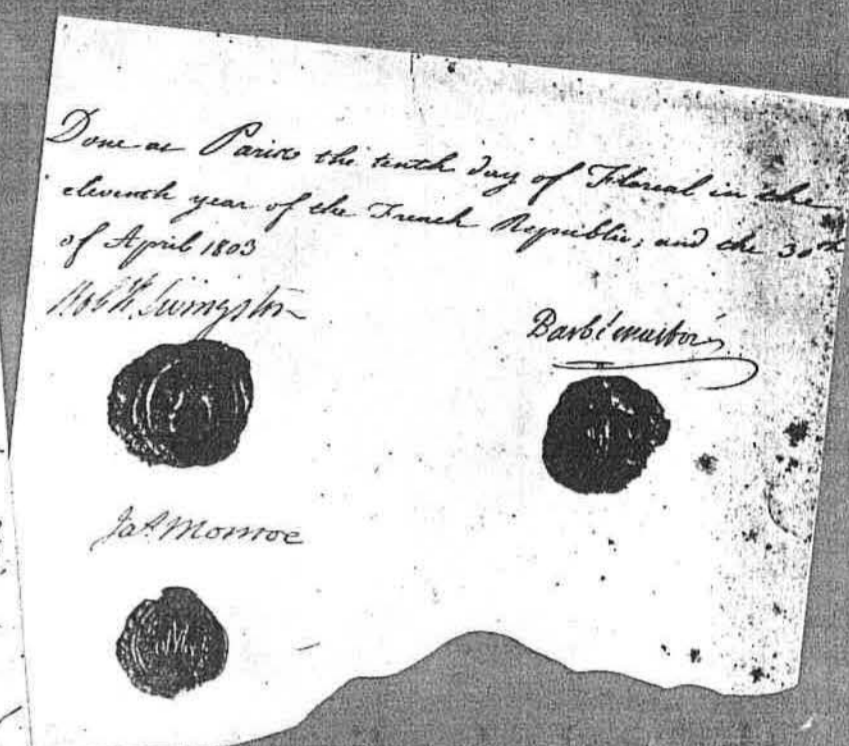 Done at Paris the tenth day of Floreal in the
eleventh year of the French Republic; and the 30th
of April 1803
Rob R Livingston
Barbé marbois
Jas Monroe